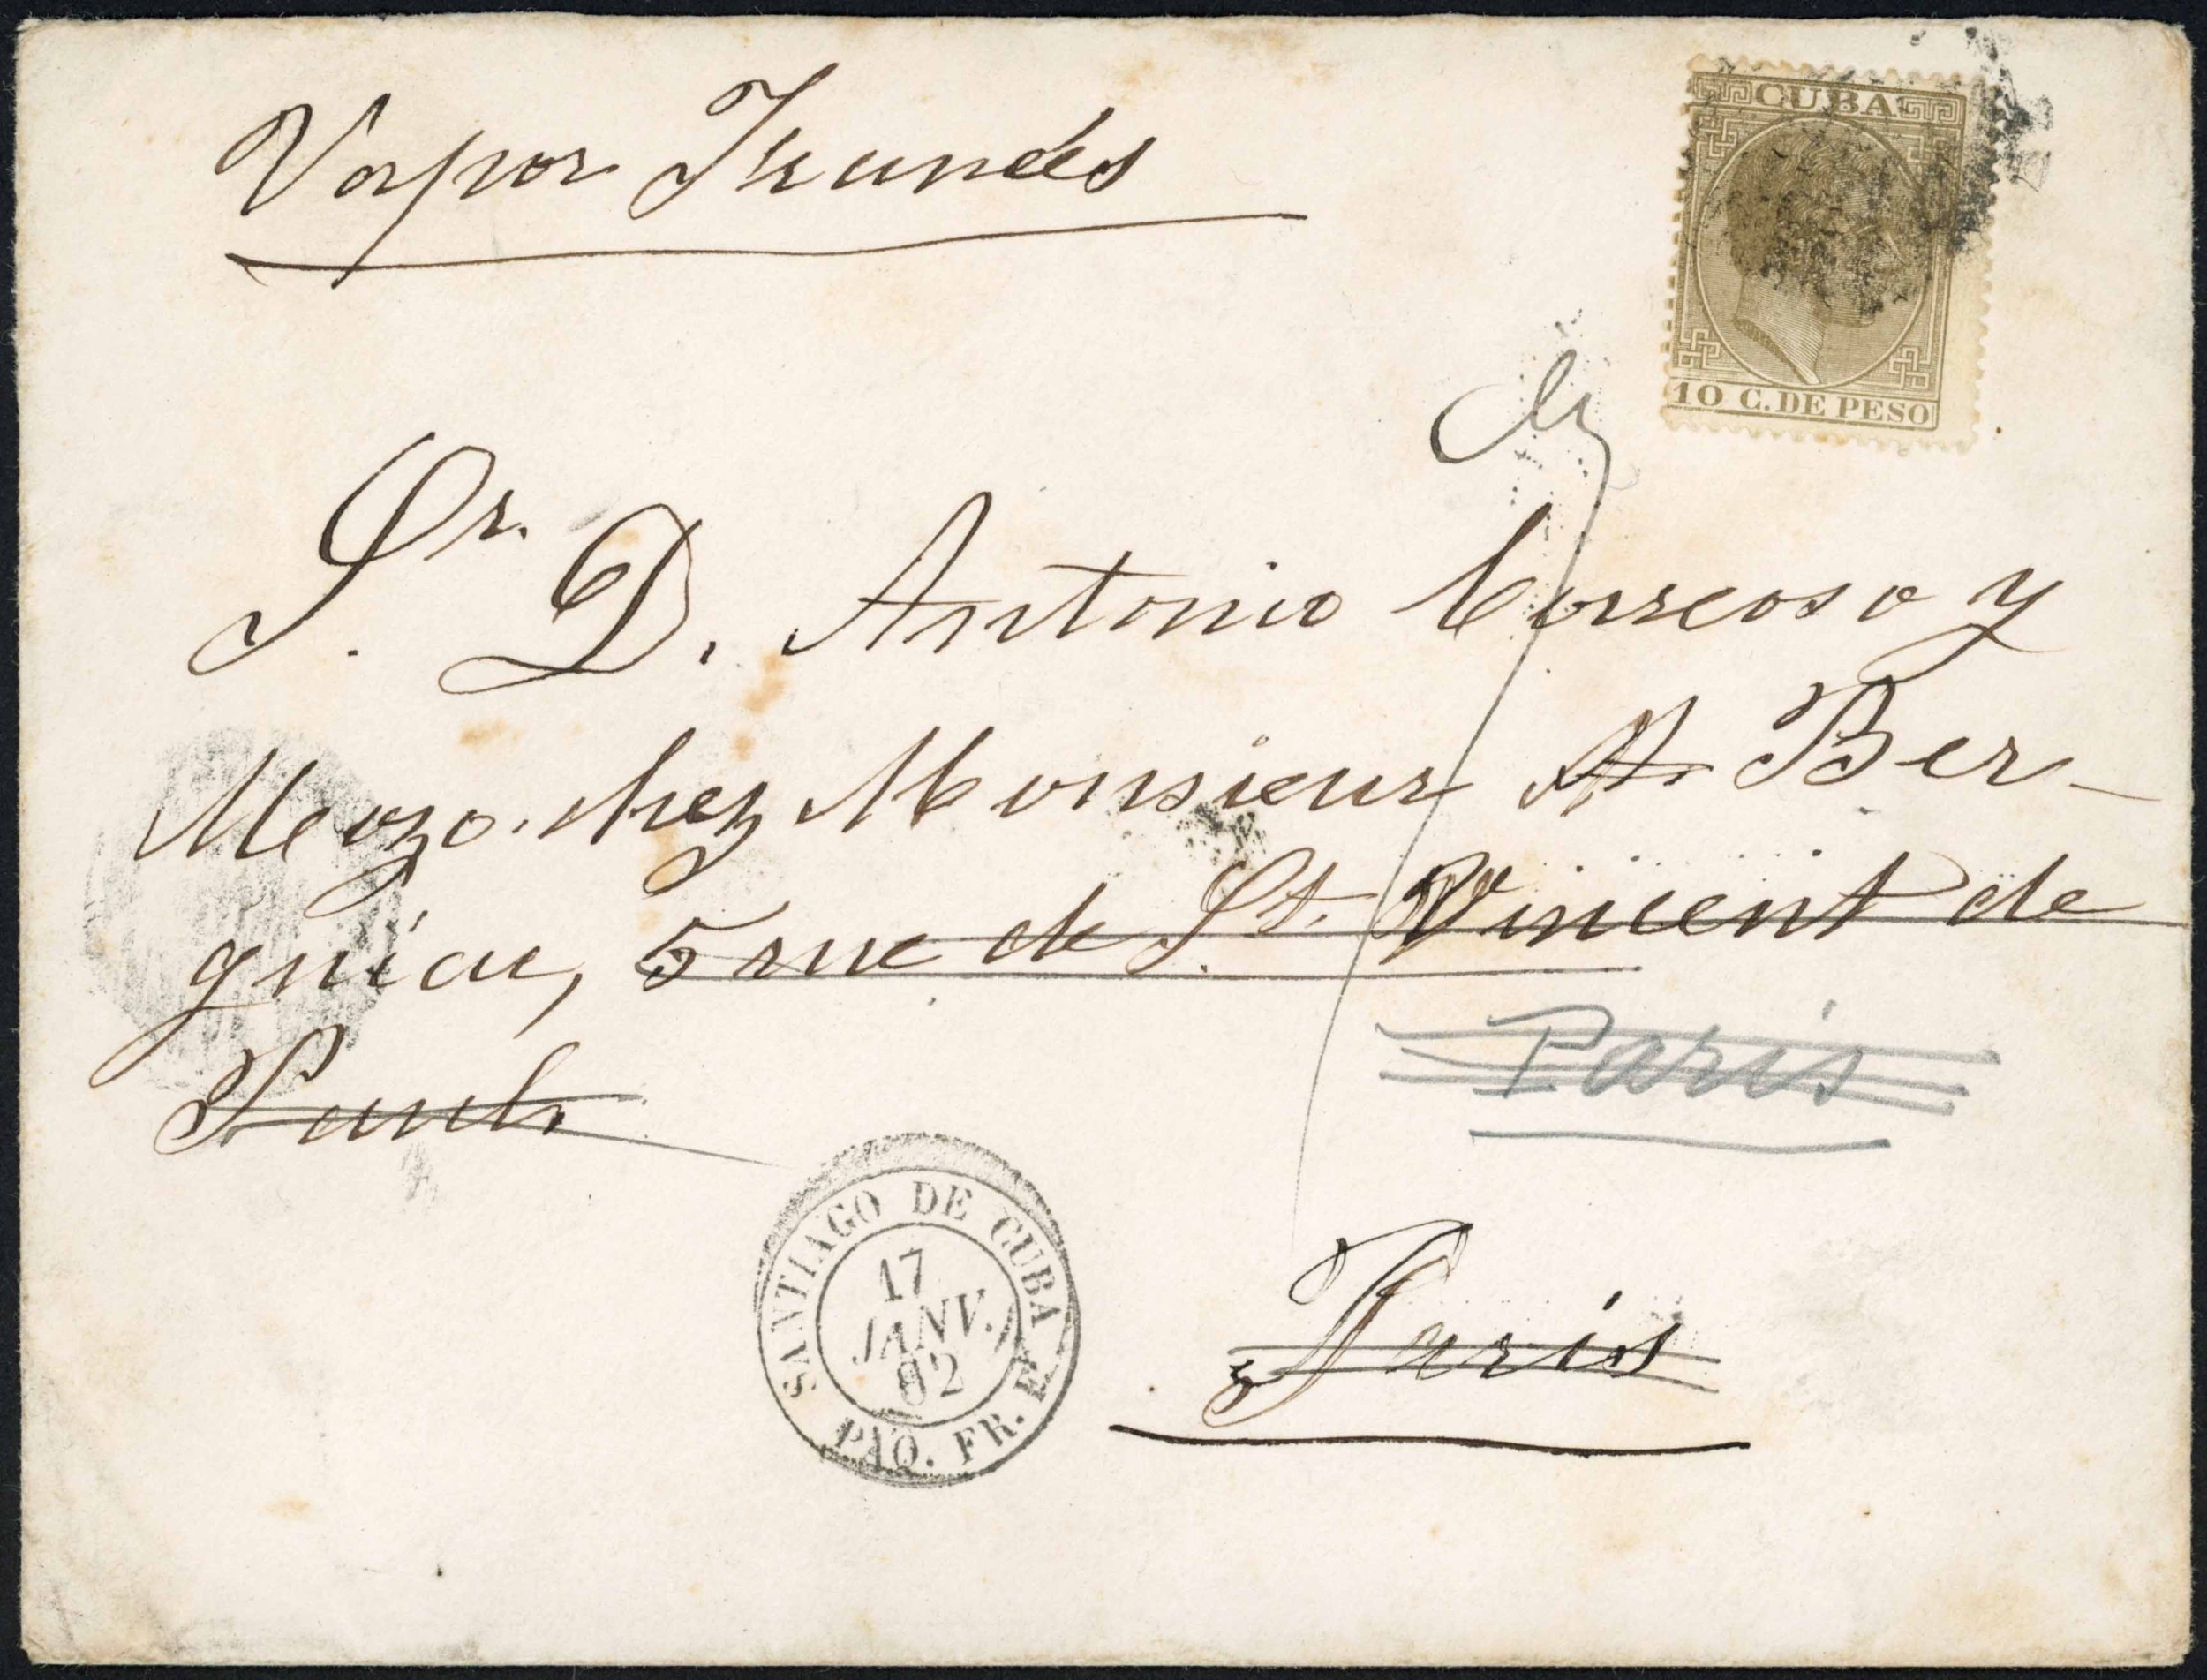 Vapor Francés
CUBA
10 C. DE PESO
Sr. D. Antonio Correoso y
Meozo. chez Monsieur A. Ber-
gniac, 5 rue de St. Vincent de
Paul.
Paris
SANTIAGO DE CUBA
17
JANV.
82
PAQ. FR. E
Paris